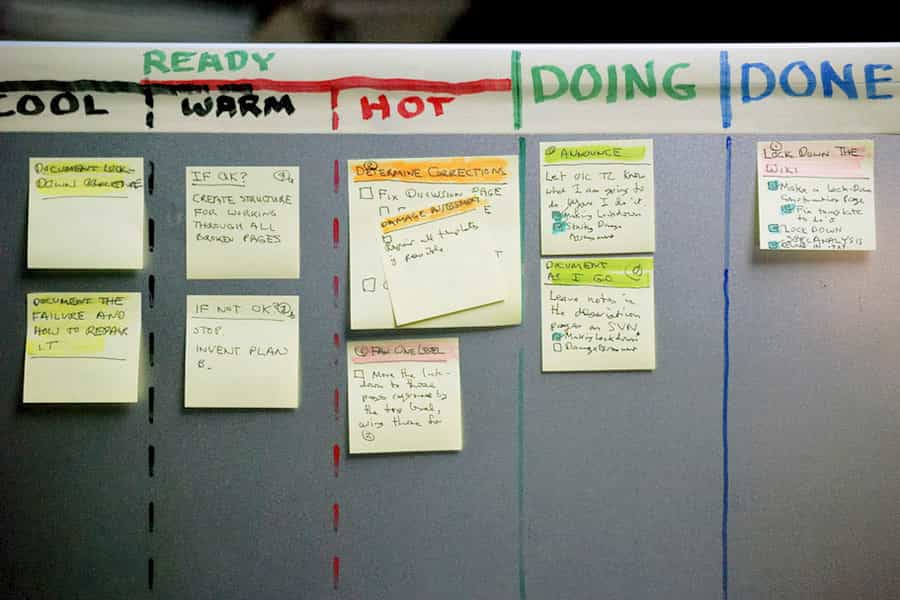 READY
COOL
WARM
HOT
DOING
DONE
DOCUMENT LOCK-
DOWN
DOCUMENT THE
FAILURE AND
HOW TO REPAIR
IT
IF OK?
CREATE STRUCTURE
FOR WORKING
THROUGH ALL
BROKEN PAGES
IF NOT OK?
STOP.
INVENT PLAN
B.
DETERMINE CORRECTIONS
FIX DISCUSSION PAGE
DAMAGE
Repair all templates
if possible
FAN ONE LEVEL
Move the lock-
down to those
pages referenced by
the top level,
using theme for
ANNOUNCE
Let
what I am going to
do before I do it.
Making Lockdown
Starting Damage
Assessment
DOCUMENT
AS I GO
Leave notes in
the description
pages on SVN
Making Lockdown
LOCK DOWN THE
WIKI
Make a Lock-Down
Page
Fix template
to do it
LOCK DOWN